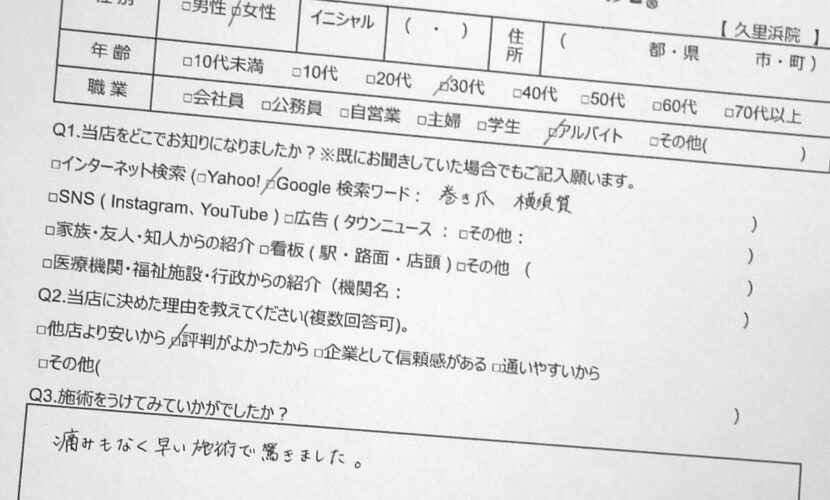 【 久里浜院 】
性 別 □男性 □女性 イニシャル ( ・ ) 住所 ( 都・県 市・町 )
年 齢 □10代未満 □10代 □20代 □30代 □40代 □50代 □60代 □70代以上
職 業 □会社員 □公務員 □自営業 □主婦 □学生 □アルバイト □その他( )
Q1.当店をどこでお知りになりましたか？※既にお聞きしていた場合でもご記入願います。
□インターネット検索 (□Yahoo! □Google 検索ワード： 巻き爪 横須賀 )
□SNS ( Instagram、YouTube ) □広告 ( タウンニュース ：□その他： )
□家族・友人・知人からの紹介 □看板 ( 駅・路面・店頭 ) □その他 ( )
□医療機関・福祉施設・行政からの紹介（機関名： )
Q2.当店に決めた理由を教えてください(複数回答可)。
□他店より安いから □評判がよかったから □企業として信頼感がある □通いやすいから
□その他( )
Q3.施術をうけてみていかがでしたか？
痛みもなく早い施術で驚きました。